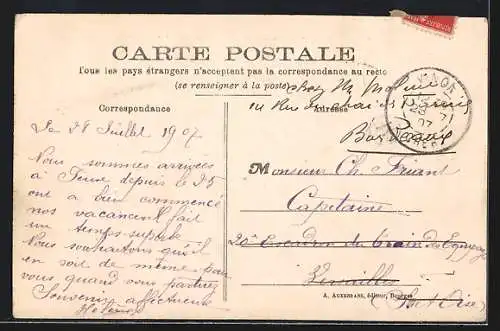 CARTE POSTALE
Tous les pays étrangers n'acceptent pas la correspondance au recto
(se renseigner à la poste)
chez Mr
Rue
Correspondance
Adresse
Bordeaux
Le 28 Juillet 1907
Nous sommes arrivées
à depuis le 25
on a bien commencé
nos vacances il fait
un temps superbe
Nous souhaitons qu'il
en soit de même pour
vous quand vous partirez
Souvenirs affectueux
Monsieur Ch. Friant
Capitaine
20e Escadron du train des Equipages
Versailles
(Set Oise)
A. AUXENFANS, éditeur, Bourges